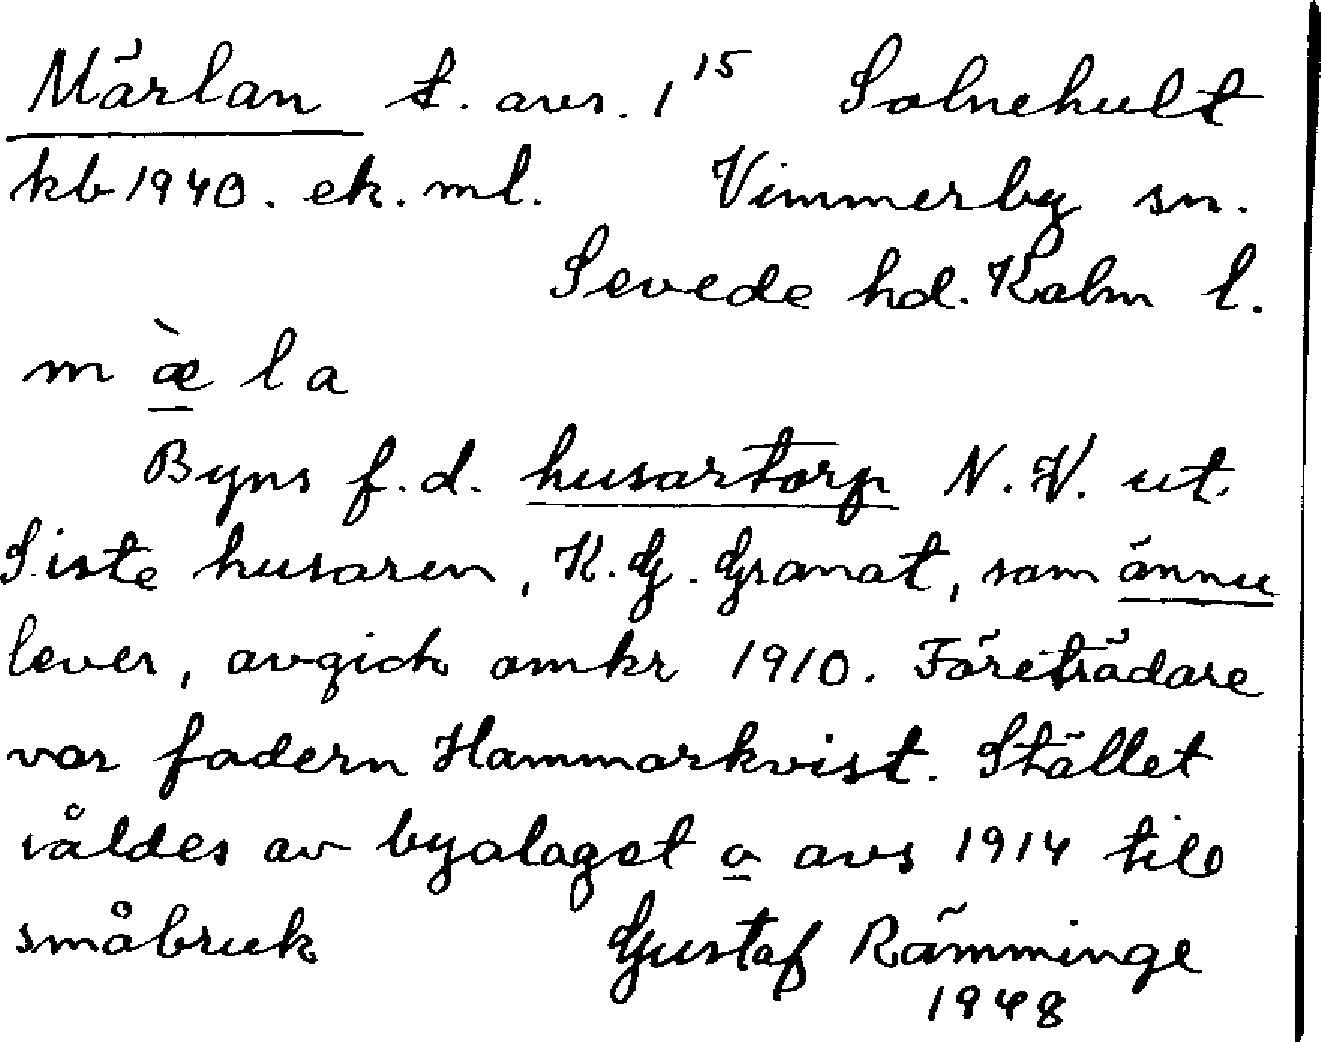 Märlan t. avs. 1¹⁵ Solnehult
kb 1940. ek. ml. Vimmerby sn.
Sevede hd. Kalm l.
m æ̀ l a
Byns f.d. husartorp N.V. ut.
Siste husaren, K.G. Granat, som ännu
lever, avgick omkr 1910. Företrädare
var fadern Hammarkvist. Stället
såldes av byalaget o avs 1914 till
småbruk Gustaf Rämminge
1948